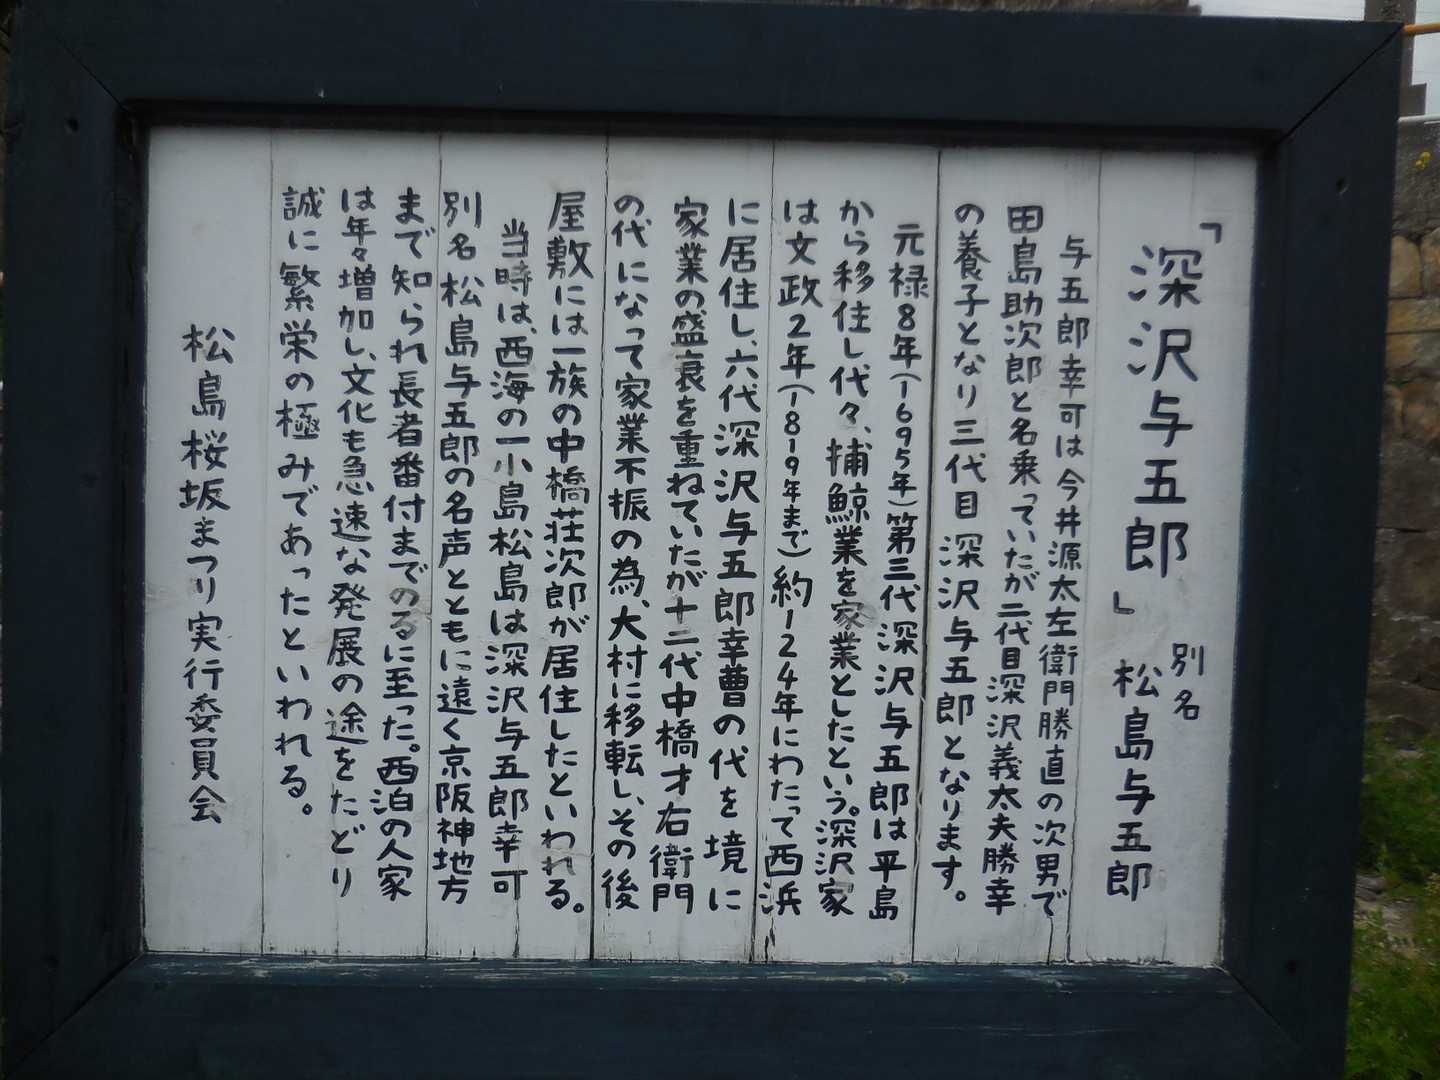 「深沢与五郎」 別名 松島与五郎
与五郎幸可は今井源太左衛門勝直の次男で
田島助次郎と名乗っていたが二代目深沢義太夫勝幸
の養子となり三代目深沢与五郎となります。
元禄8年(1695年)第三代深沢与五郎は平島
から移住し代々、捕鯨業を家業としたという。深沢家
は文政2年(1819年まで)約124年にわたって西浜
に居住し、六代深沢与五郎幸曹の代を境に
家業の盛衰を重ねていたが十二代中橋才右衛門
の代になって家業不振の為、大村に移転し、その後
屋敷には一族の中橋荘次郎が居住したといわれる。
当時は、西海の一小島松島は深沢与五郎幸可
別名松島与五郎の名声とともに遠く京阪神地方
まで知られ長者番付までのるに至った。西泊の人家
は年々増加し、文化も急速な発展の途をたどり
誠に繁栄の極みであったといわれる。
松島桜坂まつり実行委員会